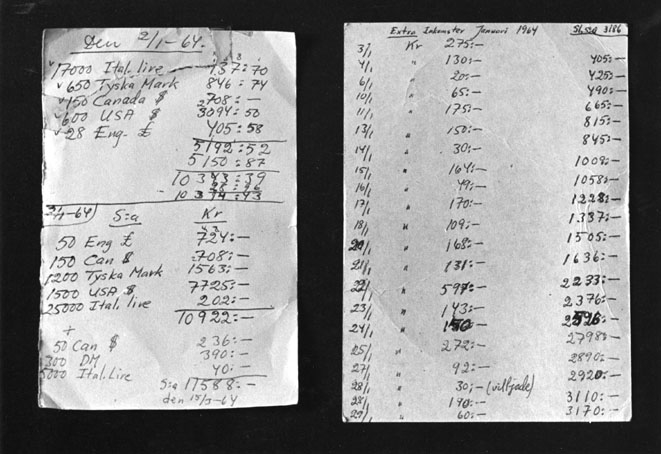 Den 2/1-64.
17000 Ital. live 137:70
650 Tyska Mark 846:74
150 Canada $ 708:-
600 USA $ 3094:50
28 Eng. £ 405:58
5192:52
5150:87
10343:39
10374:43
3/1-64) S:a Kr
50 Eng £ 724:-
150 Can $ 708:-
1200 Tyska Mark 1563:-
1500 USA $ 7725:-
25000 Ital. live 202:-
10922:-
+
50 Can $ 236:-
300 DM 390:-
5000 Ital. Live 40:-
S:a 11588:-
den 15/1-64
Extra Inkomster Januari 1964 Sl.s:a 3186
3/1 Kr 275:-
4/1 " 130:- 405:-
6/1 " 20:- 425:-
10/1 " 65:- 490:-
11/1 " 175:- 665:-
13/1 " 150:- 815:-
14/1 " 30:- 845:-
15/1 " 164:- 1009:-
16/1 " 49:- 1058:-
17/1 " 170:- 1228:-
18/1 " 109:- 1337:-
20/1 " 168:- 1505:-
21/1 " 131:- 1636:-
22/1 " 597:- 2233:-
23/1 " 143:- 2376:-
24/1 " 150:- 2526:-
25/1 " 272:- 2798:-
27/1 " 92:- 2890:-
28/1 " 30:- 2920:-
28/1 " 190:- 3110:-
29/1 " 60:- 3170:-